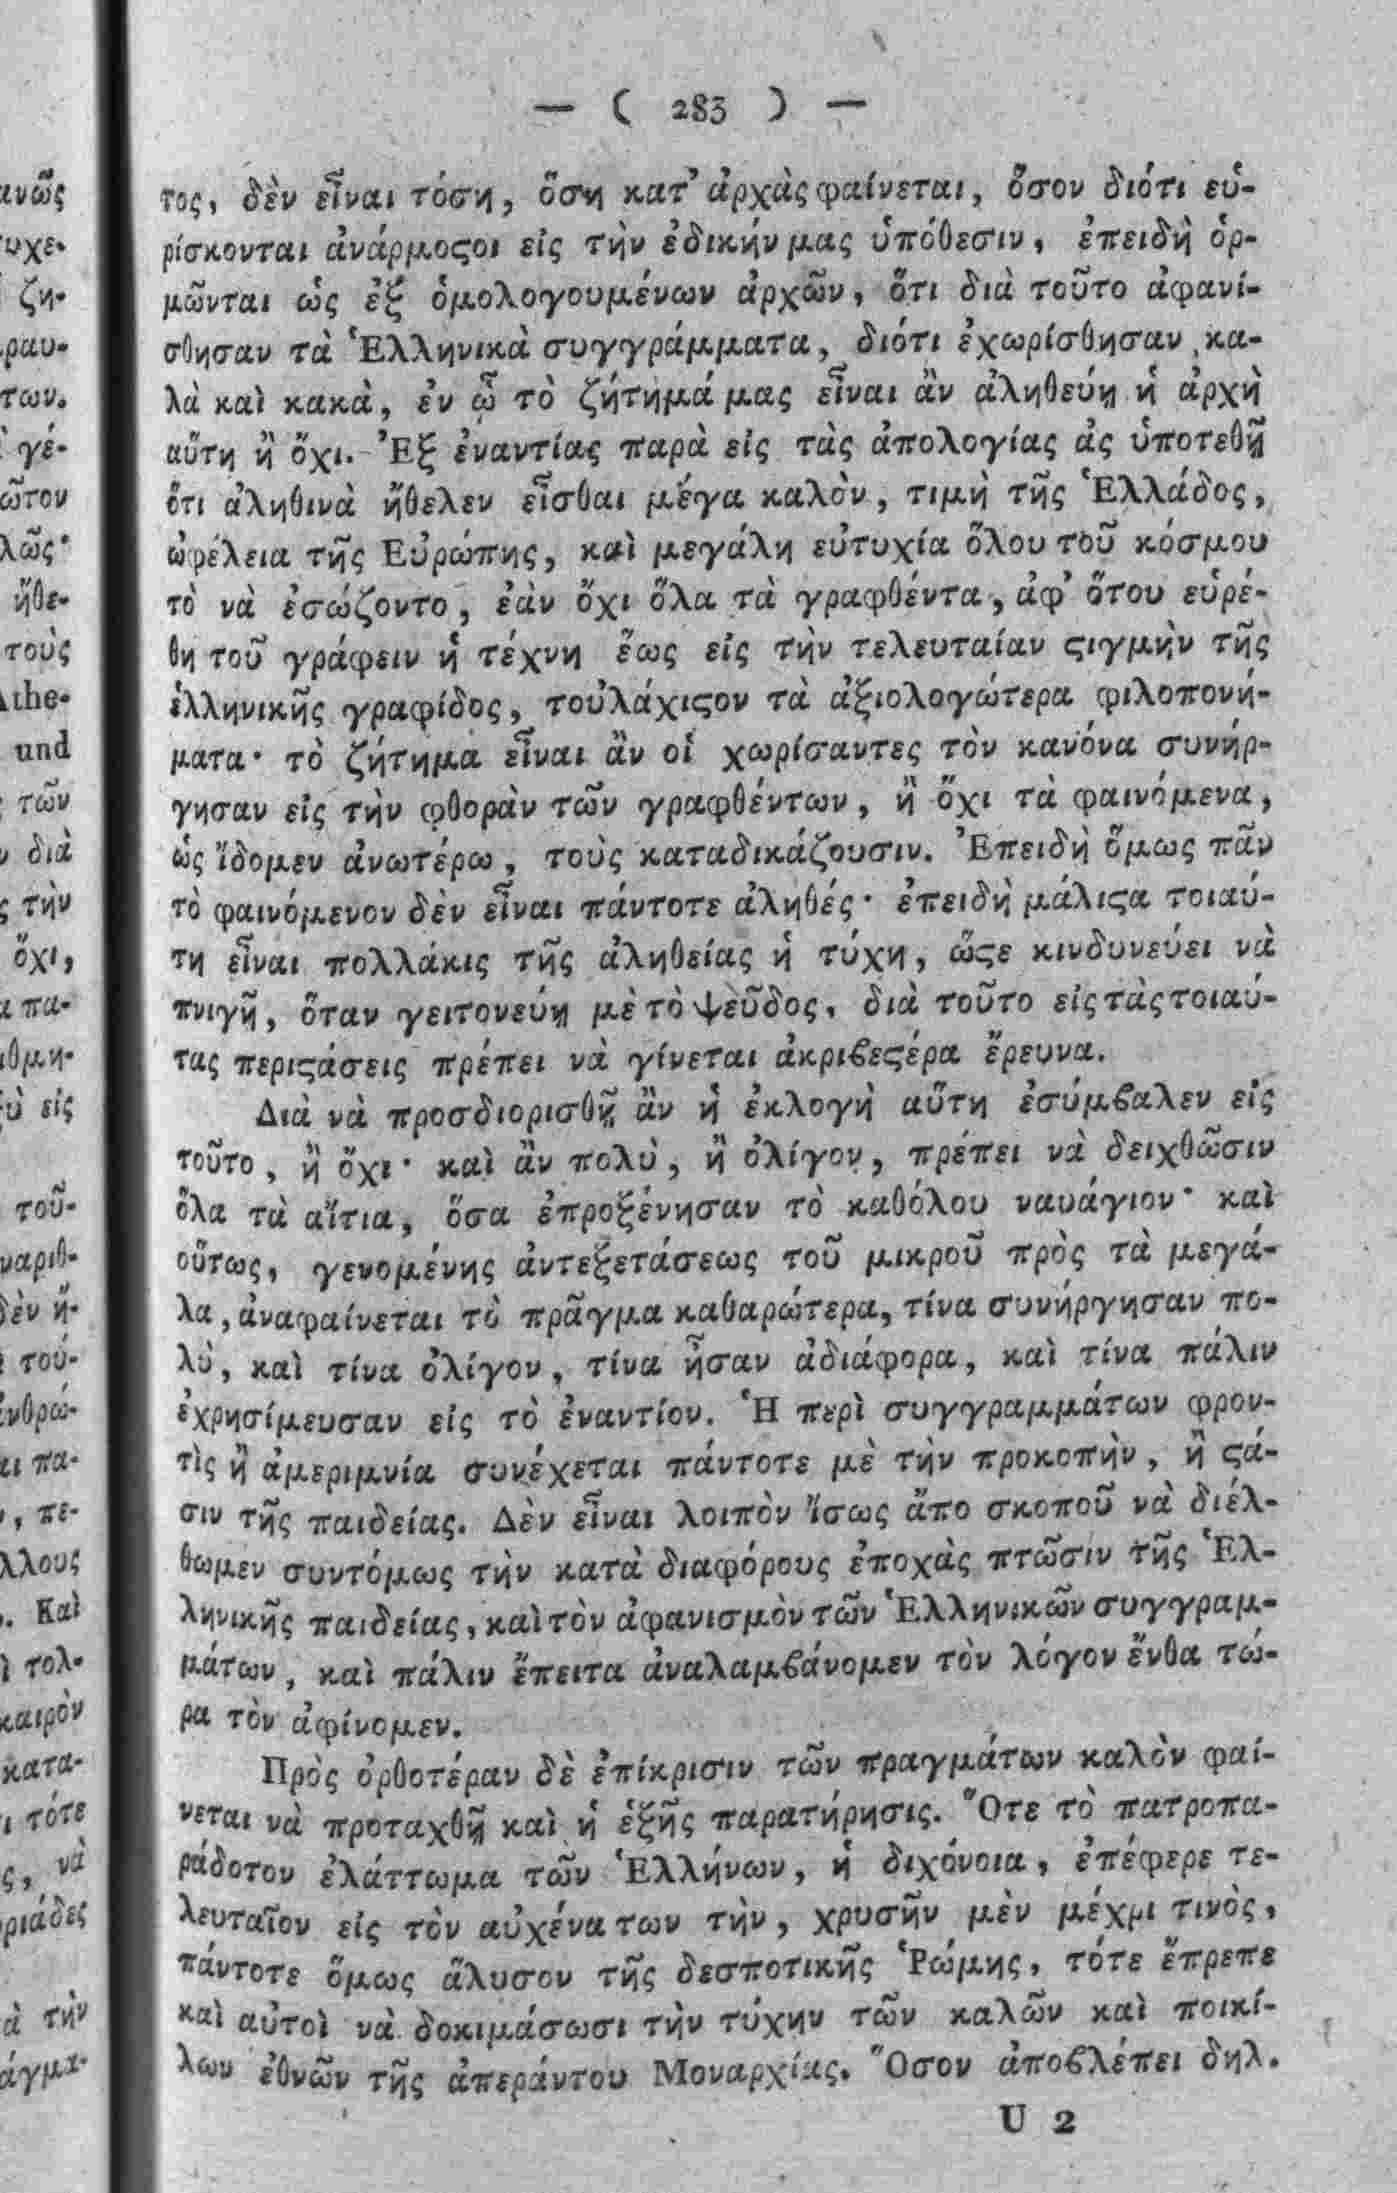 — ( 283 ) —
τος, δὲν εἶναι τόση, ὅση κατ' ἀρχὰς φαίνεται, ὅσον διότι εὑ-
ρίσκονται ἀνάρμοϛοι εἰς τὴν ἐδικήν μας ὑπόθεσιν, ἐπειδὴ ὁρ-
μῶνται ὡς ἐξ ὁμολογουμένων ἀρχῶν, ὅτι διὰ τοῦτο ἀφανί-
σθησαν τὰ Ἑλληνικὰ συγγράμματα, διότι ἐχωρίσθησαν κα-
λὰ καὶ κακὰ, ἐν ᾧ τὸ ζήτημά μας εἶναι ἂν ἀληθεύῃ ἡ ἀρχὴ
αὕτη ἢ ὄχι. Ἐξ ἐναντίας παρὰ εἰς τὰς ἀπολογίας ἀς ὑποτεθῇ
ὅτι ἀληθινὰ ἤθελεν εἶσθαι μέγα καλὸν, τιμὴ τῆς Ἑλλάδος,
ὠφέλεια τῆς Εὐρώπης, καὶ μεγάλη εὐτυχία ὅλου τοῦ κόσμου
τὸ νὰ ἐσώζοντο, ἐὰν ὄχι ὅλα τὰ γραφθέντα, ἀφ' ὅτου εὑρέ-
θη τοῦ γράφειν ἡ τέχνη ἕως εἰς τὴν τελευταίαν ϛιγμὴν τῆς
ἑλληνικῆς γραφίδος, τοὐλάχιϛον τὰ ἀξιολογώτερα φιλοπονή-
ματα· τὸ ζήτημα εἶναι ἂν οἱ χωρίσαντες τὸν κανόνα συνήρ-
γησαν εἰς τὴν φθορὰν τῶν γραφθέντων, ἢ ὄχι τὰ φαινόμενα,
ὡς ἴδομεν ἀνωτέρω, τοὺς καταδικάζουσιν. Ἐπειδὴ ὅμως πᾶν
τὸ φαινόμενον δὲν εἶναι πάντοτε ἀληθές· ἐπειδὴ μάλιϛα τοιαύ-
τη εἶναι πολλάκις τῆς ἀληθείας ἡ τύχη, ὥϛε κινδυνεύει νὰ
πνιγῇ, ὅταν γειτονεύῃ μὲ τὸ ψεῦδος, διὰ τοῦτο εἰς τὰς τοιαύ-
τας περιϛάσεις πρέπει νὰ γίνεται ἀκριβεϛέρα ἔρευνα.
Διὰ νὰ προσδιορισθῇ ἂν ἡ ἐκλογὴ αὕτη ἐσύμβαλεν εἰς
τοῦτο, ἢ ὄχι· καὶ ἂν πολὺ, ἢ ὀλίγον, πρέπει νὰ δειχθῶσιν
ὅλα τὰ αἴτια, ὅσα ἐπροξένησαν τὸ καθόλου ναυάγιον· καὶ
οὕτως, γενομένης ἀντεξετάσεως τοῦ μικροῦ πρὸς τὰ μεγά-
λα, ἀναφαίνεται τὸ πρᾶγμα καθαρώτερα, τίνα συνήργησαν πο-
λὺ, καὶ τίνα ὀλίγον, τίνα ἦσαν ἀδιάφορα, καὶ τίνα πάλιν
ἐχρησίμευσαν εἰς τὸ ἐναντίον. Ἡ περὶ συγγραμμάτων φρον-
τὶς ἢ ἀμεριμνία συνέχεται πάντοτε μὲ τὴν προκοπὴν, ἢ ϛά-
σιν τῆς παιδείας. Δὲν εἶναι λοιπὸν ἴσως ἄπο σκοποῦ νὰ διέλ-
θωμεν συντόμως τὴν κατὰ διαφόρους ἐποχὰς πτῶσιν τῆς Ἑλ-
ληνικῆς παιδείας, καὶ τὸν ἀφανισμὸν τῶν Ἑλληνικῶν συγγραμ-
μάτων, καὶ πάλιν ἔπειτα ἀναλαμβάνομεν τὸν λόγον ἔνθα τώ-
ρα τὸν ἀφίνομεν.
Πρὸς ὀρθοτέραν δὲ ἐπίκρισιν τῶν πραγμάτων καλὸν φαί-
νεται νὰ προταχθῇ καὶ ἡ ἑξῆς παρατήρησις. Ὅτε τὸ πατροπα-
ράδοτον ἐλάττωμα τῶν Ἑλλήνων, ἡ διχόνοια, ἐπέφερε τε-
λευταῖον εἰς τὸν αὐχένα των τὴν, χρυσῆν μὲν μέχρι τινὸς,
πάντοτε ὅμως ἅλυσον τῆς δεσποτικῆς Ῥώμης, τότε ἔπρεπε
καὶ αὐτοὶ νὰ δοκιμάσωσι τὴν τύχην τῶν καλῶν καὶ ποικί-
λων ἐθνῶν τῆς ἀπεράντου Μοναρχίας. Ὅσον ἀποβλέπει δηλ.
U 2